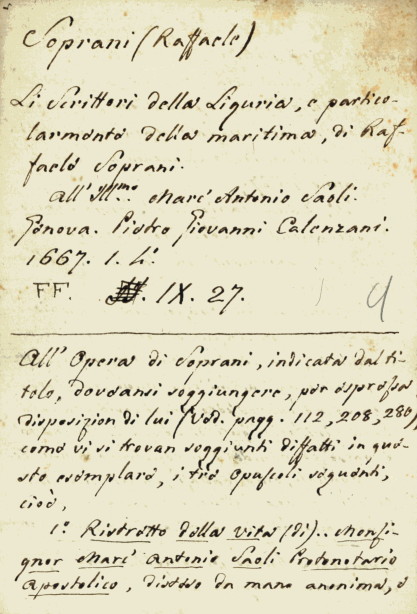 Soprani (Raffaele)
Li Scrittori della Liguria, e partico-
larmente della maritima, di Raf-
faele Soprani.
All' Ill.mo Marc' Antonio Saoli.
Genova. Pietro Giovanni Calenzani.
1667. 1. 4.
FF. IX. 27.
All' Opera di Soprani, indicata dal ti-
tolo, doveansi soggiungere, per espressa
disposizion di lui (Ved. pagg. 112, 208, 280),
come vi si trovan soggiunti diffatti in que-
sto esemplare, i tre opuscoli seguenti,
cioè,
1.° Ristretto della vita (di).. Monsi-
gnor Marc' Antonio Saoli Protonotario
Apostolico, disteso da mano anonima, e